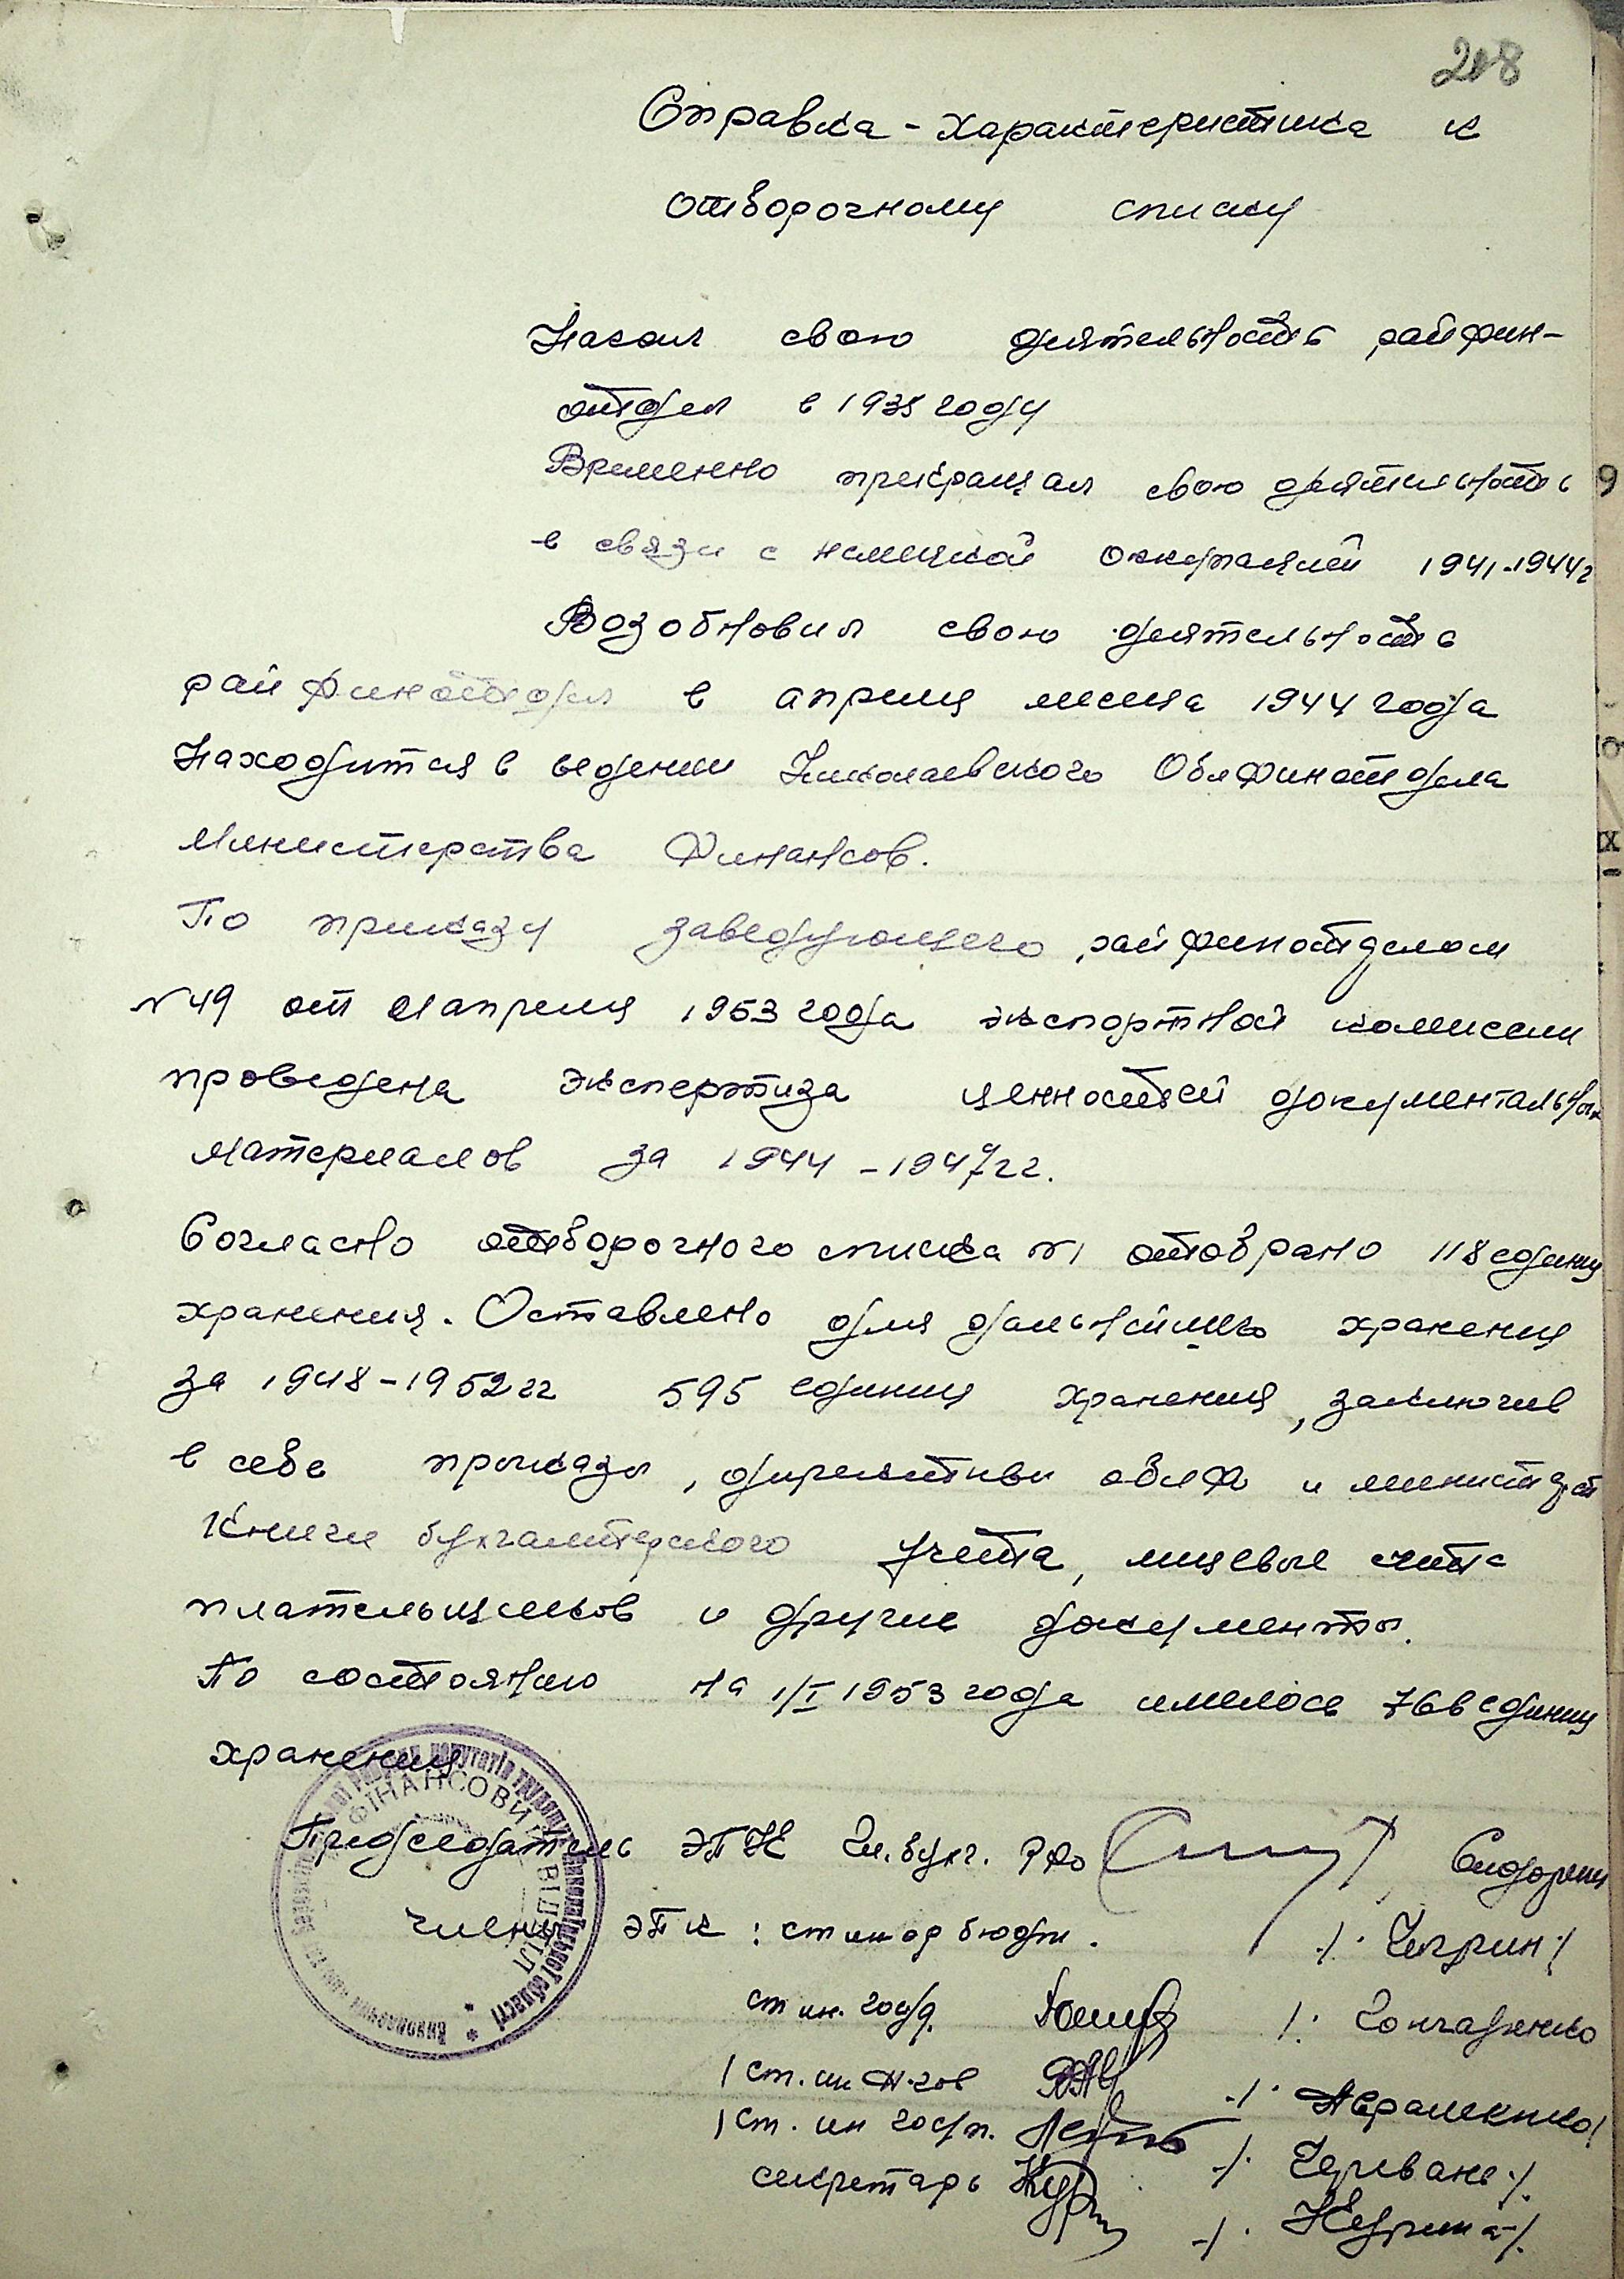 208
Справка - характеристика к
отборочному списку
Начал свою деятельность райфин-
отдел в 1935 году
Временно прекращал свою деятельность
в связи с немецкой оккупацией 1941-1944г
Возобновил свою деятельность
райфинотдел в апреля месяца 1944 года
Находится в ведении Николаевского Облфинотдела
Министерства Финансов.
По приказу заведующего райфинотделом
№49 от апреля 1953 года экспортной комиссии
проведена экспертиза ценностей документальных
материалов за 1944-1947гг.
Согласно отборочного списка №1 отобрано 118 единиц
хранения. Оставлено для дальнейшего хранения
за 1948-1952гг 595 единиц хранения, заключив
в себе приказы, директивы облфо и министерст
Книги бухгалтерского учета, лицевые счета
плательщиков и другие документы.
По состоянию на 1/I 1953 года имелось единиц
хранения
Председатель ЭПК Гл. бухг. РФО
члены ЭПК: ст ин бюдж.
ст ин. госд. /: Гончаренко
/ст. ин /: Авраменко/
/ст. ин госуп. /: Червань/.
секретарь
ФІНАНСОВИЙ ВІДДІЛ
депутатів трудящих Миколаївської області